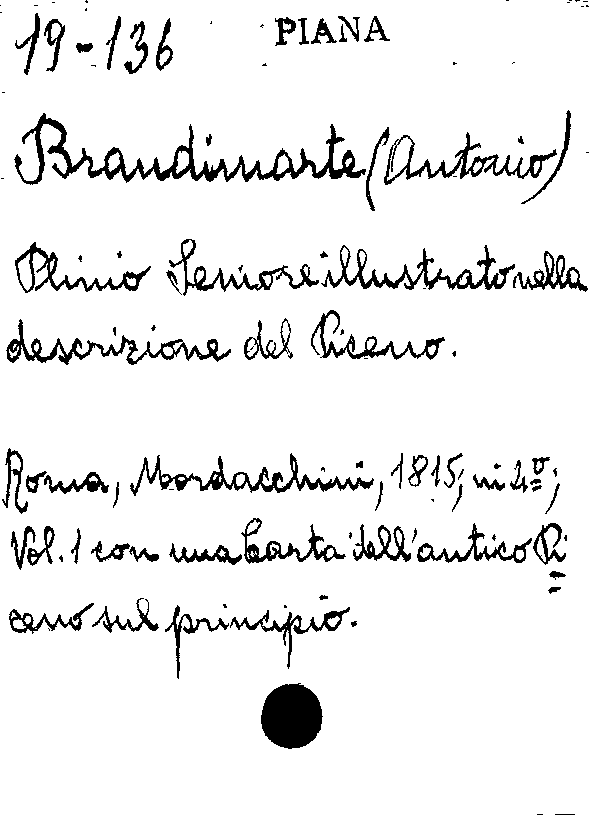 19-136 PIANA
Brandimarte (Antonio)
Plinio Seniore illustrato nella
descrizione del Piceno.
Roma, Mordacchini, 1815; in 4º;
Vol. 1 con una Carta dell'antico Pi=
ceno sul principio.